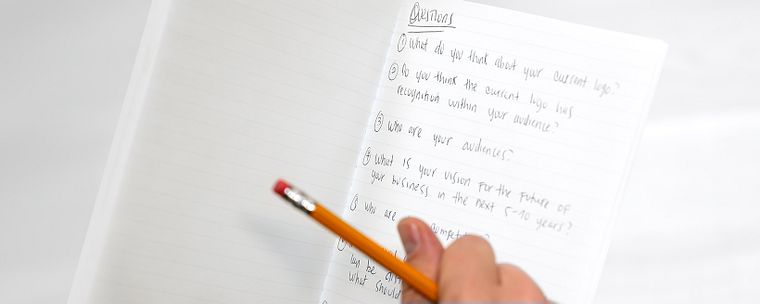 Questions
① What do you think about your current logo?
② Do you think the current logo has
recognition within your audience?
③ Who are your audiences?
④ What is your vision for the future of
your business in the next 5-10 years?
Who are
can be
what should